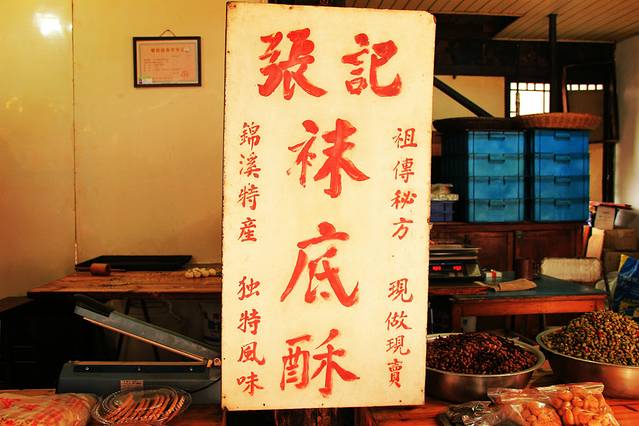 張記
袜底酥
祖傳秘方 現做現賣
錦溪特産 独特風味